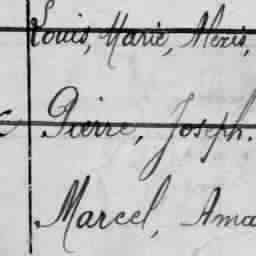 Louis, Marie, Alexis,
Pierre, Joseph.
Marcel, Ama